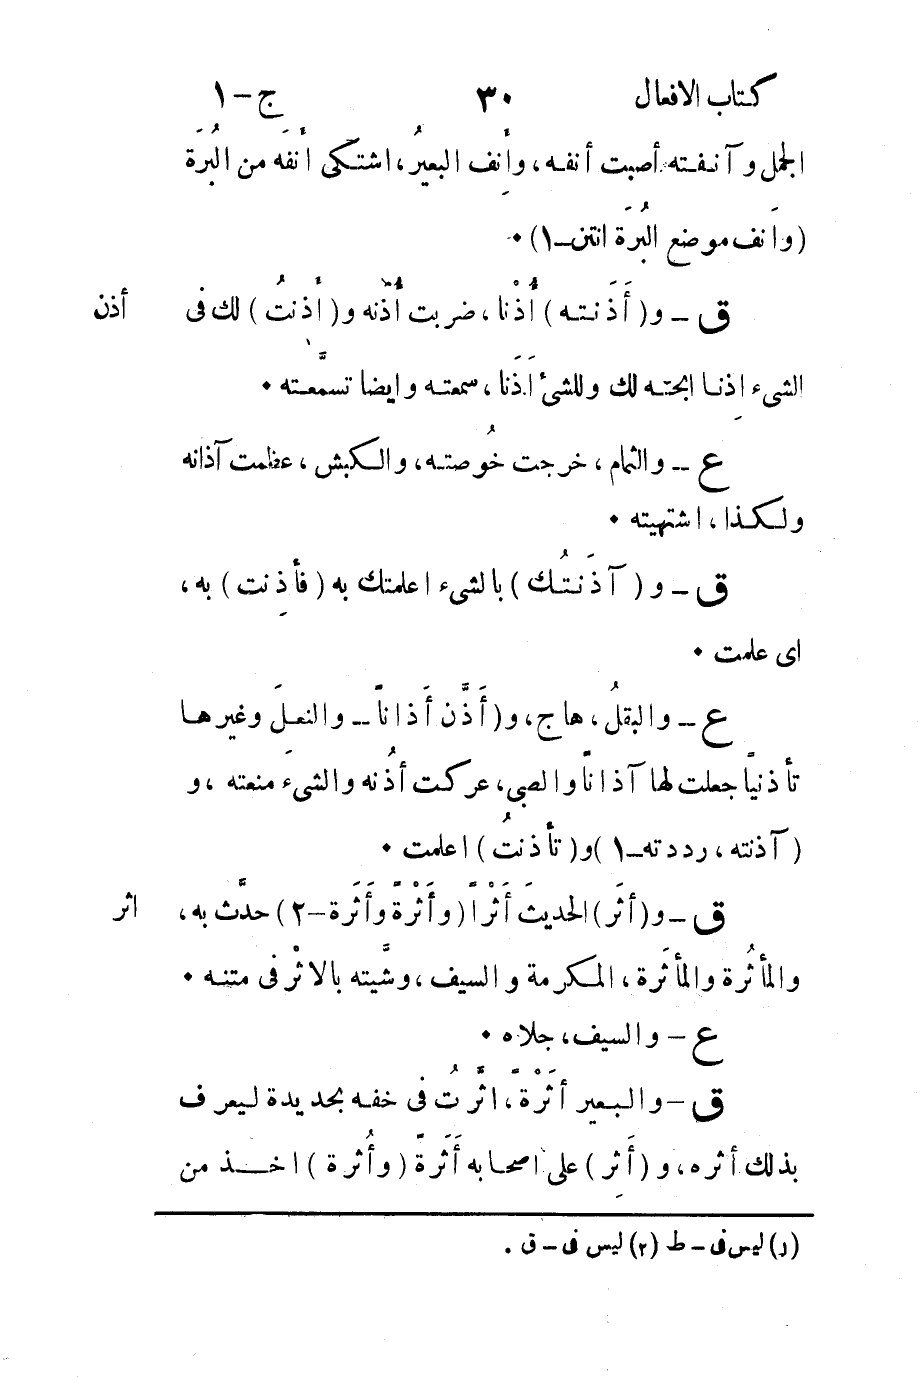 كتاب الافعال ٣٠ ج - ١
الجمل وآنفته أصبت أنفه، وأنِف البعيرُ، اشتكى أنفَه من البُرَة
(وأنِف موضع البُرَة انتن-١)٠
ق - و(أَذَنته) أُذْنا، ضربت أُذنه و(أَذِنتُ) لك فى
أذن
الشىء إذنا ابحته لك وللشئ أَذَنا، سمعته وايضا تسمَّعته ٠
ع - والثمام، خرجت خُوصته، والكبش، عظمت آذانه
ولكذا، اشتهيته ٠
ق - و (آذَنتُك) بالشىء اعلمتك به (فأذِنت) به،
اى علمت ٠
ع - والبقلُ، هاج، و(أَذَّن أَذاناً - والنعلَ وغيرها
تأذنياً جعلت لها آذاناً والصبى، عركت أُذنه والشىءَ منعته، و
(آذنته، رددته-١) و(تأذنتُ) اعلمت ٠
ق - و(أثَر) الحديثَ أَثْراً (وأَثْرةً وأَثَرة-٢) حدَّث به،
اثر
والمأثُرة والمأثَرة، المكرمة والسيف، وشَّيته بالاثْر فى متنه ٠
ع - والسيف، جلاه ٠
ق - والبعير أَثْرةً، اثَّرتُ فى خفه بحديدة ليعرف
بذلك أثره، و (أَثِر) على اصحابه أَثَرةً (وأُثرة) اخذ من
(١) ليس فى - ط (٢) ليس فى - ق .